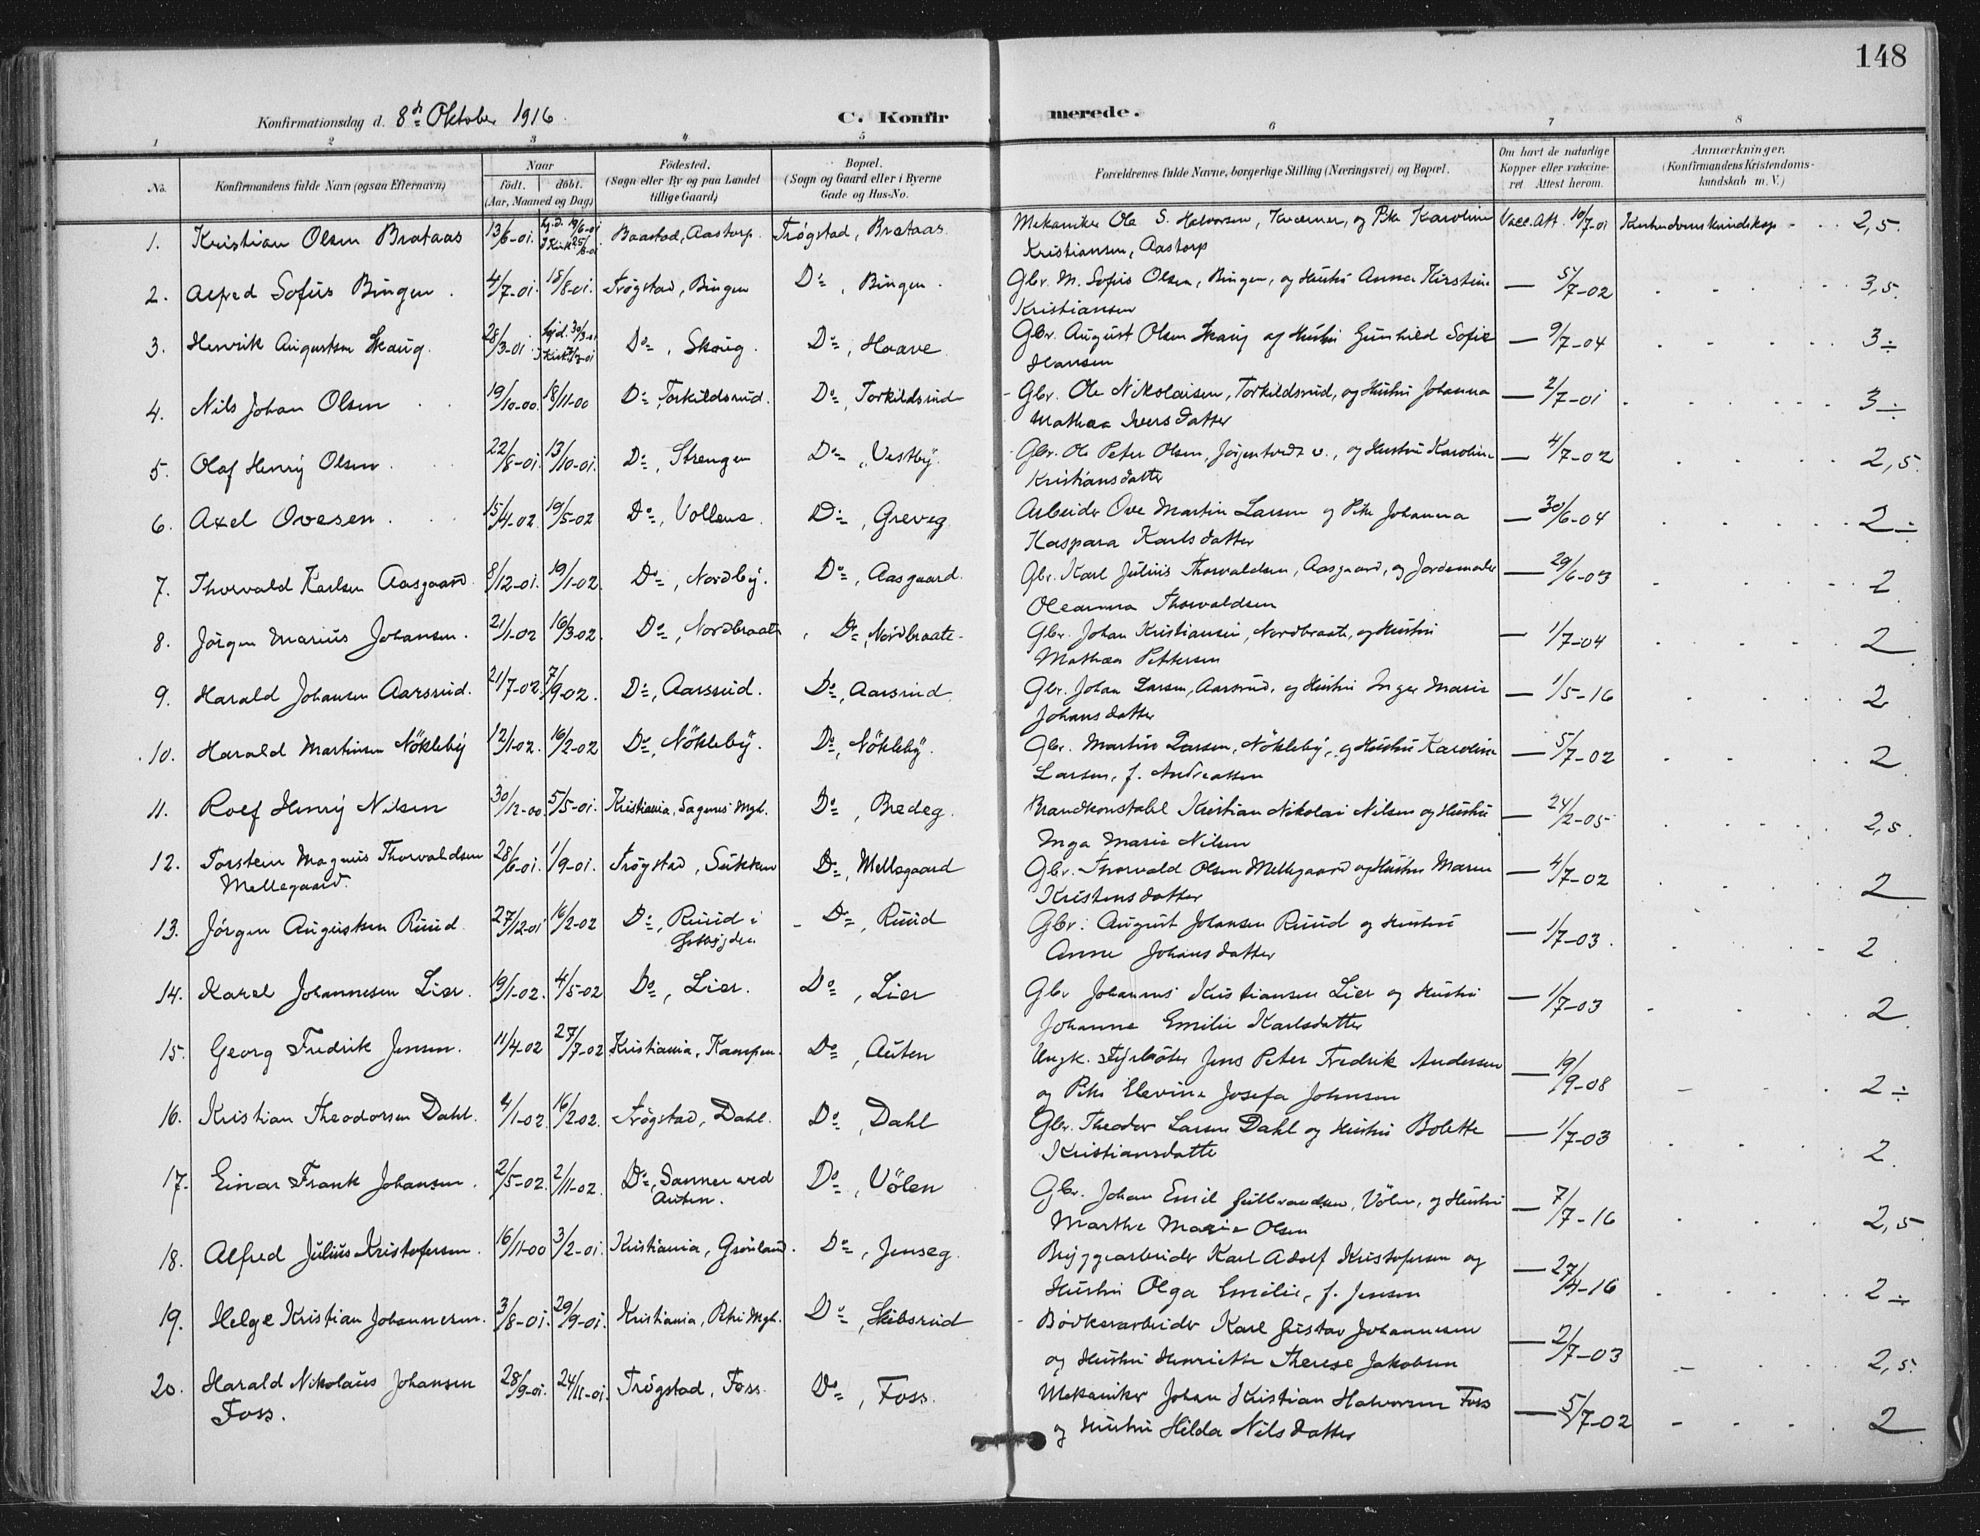 148
Konfirmationsdag d. 8de Oktober 1916. C. Konfirmerede.
1 2 3 4 5 6 7 8
No. Konfirmandens fulde Navn (ogsaa Efternavn) Naar født. døbt. (Aar, Maaned og Dag) Fødested. (Sogn eller By og paa Landet tillige Gaard) Bopæl. (Sogn og Gaard eller i Byerne Gade og Hus-No. Forældrenes fulde Navne, borgerlige Stilling (Næringsvei) og Bopæl. Om havt de naturlige Kopper eller vakcineret Attest herom. Anmærkninger. (Konfirmandens Kristendomskundskab m. V.)
1. Kristian Olsen Brataas 13/6-01. hj.d. 19/6-01 Baastad, Aastorp. Trøgstad, Brataas. Mekaniker Ole S. Halvorsen, Kværner, og Pike Karoline Vacc. Att. 10/7-01 Kristendomskundskap - . . 2,5.
Kristiansen, Aastorp
2. Alfred Sofus Bingen. 4/7-01. 18/8-01. Trøgstad, Bingen Do, Bingen. Gbr. M. Sofus Olsen, Bingen, og Hustru Anna Kirstine — 5/7-02 3,5.
Kristiansen
3. Henrik Augustsen Skaug. 28/3-01 hj.d. 30/3-01 Do, Skoug. Do, Haave. Gbr. August Olsen Skaug og Hustru Gunhild Sofie — 9/7-04 3÷
Hansen
4. Nils Johan Olsen 19/10-00. 18/11-00 Do, Torkildsrud. Do, Torkildsrud Gbr. Ole Nikolaisen, Torkildsrud, og Hustru Johanna — 2/7-01 3÷
Mathea Iversdatter
5. Olaf Henry Olsen 22/8-01. 13/10-01. Do, Strengen Do, Vestby. Gbr. Ole Peter Olsen, og Hustru Karoline — 4/7-02 2,5.
Kristiansdatter
6. Axel Ovesen. 15/4-02 19/5-02 Do, Vollene. Do, Greveg Arbeider Ove Martin Larsen og Pike Johanna — 30/6-04 2÷
Kaspara Karlsdatter
7. Thorvald Karlsen Aasgaard 8/12-01. 19/1-02. Do, Nordby. Do, Aasgaard. Gbr. Karl Julius Thorvaldsen, Aasgaard, og Jordemoder — 29/6-03 2
Oleanna Thorvaldsen
8. Jörgen Marius Johansen. 21/1-02 16/3-02. Do, Nordbraate Do, Nordbraate. Gbr. Johan Kristiansen, Nordbraate, og Hustru — 1/7-04 2
Mathea Pettersen
9. Harald Johansen Aarsrud. 21/7-02. 7/9-02. Do, Aarsrud. Do, Aarsrud Gbr. Johan Larsen, Aarsrud, og Hustru Inger Marie — 1/5-16 2
Johansdatter
10. Harald Martinsen Nökleby 12/1-02. 16/2-02 Do, Nökleby. Do, Nökleby. Gbr. Martin Larsen, Nökleby, og Hustru Karoline — 5/7-02 2
Larsen, f. Andreassen
11. Rolf Henry Nilsen 30/12-00. 5/5-01. Kristiania, Sagenes Mgh. Do, Bredeg. Brandkonstabel Kristian Nikolai Nilsen og Hustru — 24/2-05 2,5.
Inga Marie Nilsen
12. Torstein Magnus Thorvaldsen 28/6-01. 1/9-01. Trøgstad, Sukken Do, Mellegaard Gbr. Thorvald Olsen Mellegaard og Hustru Maren — 4/7-02 2
Mellegaard. Kristensdatter
13. Jörgen Augustsen Ruud. 27/12-01 16/2-02 Do, Ruud i Do, Ruud Gbr. August Johansen Ruud og Hustru — 1/7-03. 2.
Anne Johansdatter
14. Karel Johannesen Lier. 19/1-02. 4/5-02 Do, Lier. Do, Lier Gbr Johannes Kristiansen Lier og Hustru — 1/7-03 2.
Johanne Emilie Karlsdatter
15. Georg Fredrik Jensen. 11/4-02 27/7-02 Kristiania, Kampen. Do, Auten Ungk. Fyrbøter Jens Peter Fredrik Andersen — 19/9-08 2÷
og Pike Elevine Josefa Johnsen
16. Kristian Theodorsen Dahl. 4/1-02 16/2-02. Trøgstad, Dahl. Do, Dahl Gbr. Theodor Larsen Dahl og Hustru Bolette — 1/7-03 2.
Kristiansdatter
17. Einar Frank Johansen. 2/5-02. 2/11-02. Do, Sanner ved Do, Völen Gbr. Johan Emil Gulbrandsen, Völen, og Hustru — 7/7-16 2,5
Auten. Marthe Marie Olsen
18. Alfred Julius Kristofersen. 16/11-00 3/2-01. Kristiania, Grønland. Do, Jenseg. Bryggearbeider Karl Adolf Kristofersen og — 27/4-16 2÷
Hustru Olga Emilie, f. Jensen
19. Helge Kristian Johannesen. 3/8-01. 29/9-01. Kristiania, Mgh. Do, Skibsrud Bødkerarbeider Karl Gustav Johannesen — 2/7-03 2,5.
og Hustru Henriette Therese Jakobsen
20. Harald Nikolaus Johansen 28/9-01. 24/11-01. Trøgstad, Foss. Do, Foss. Mekaniker Johan Kristian Halvorsen Foss — 5/7-02 2
Foss. og Hustru Hilda Nilsdatter